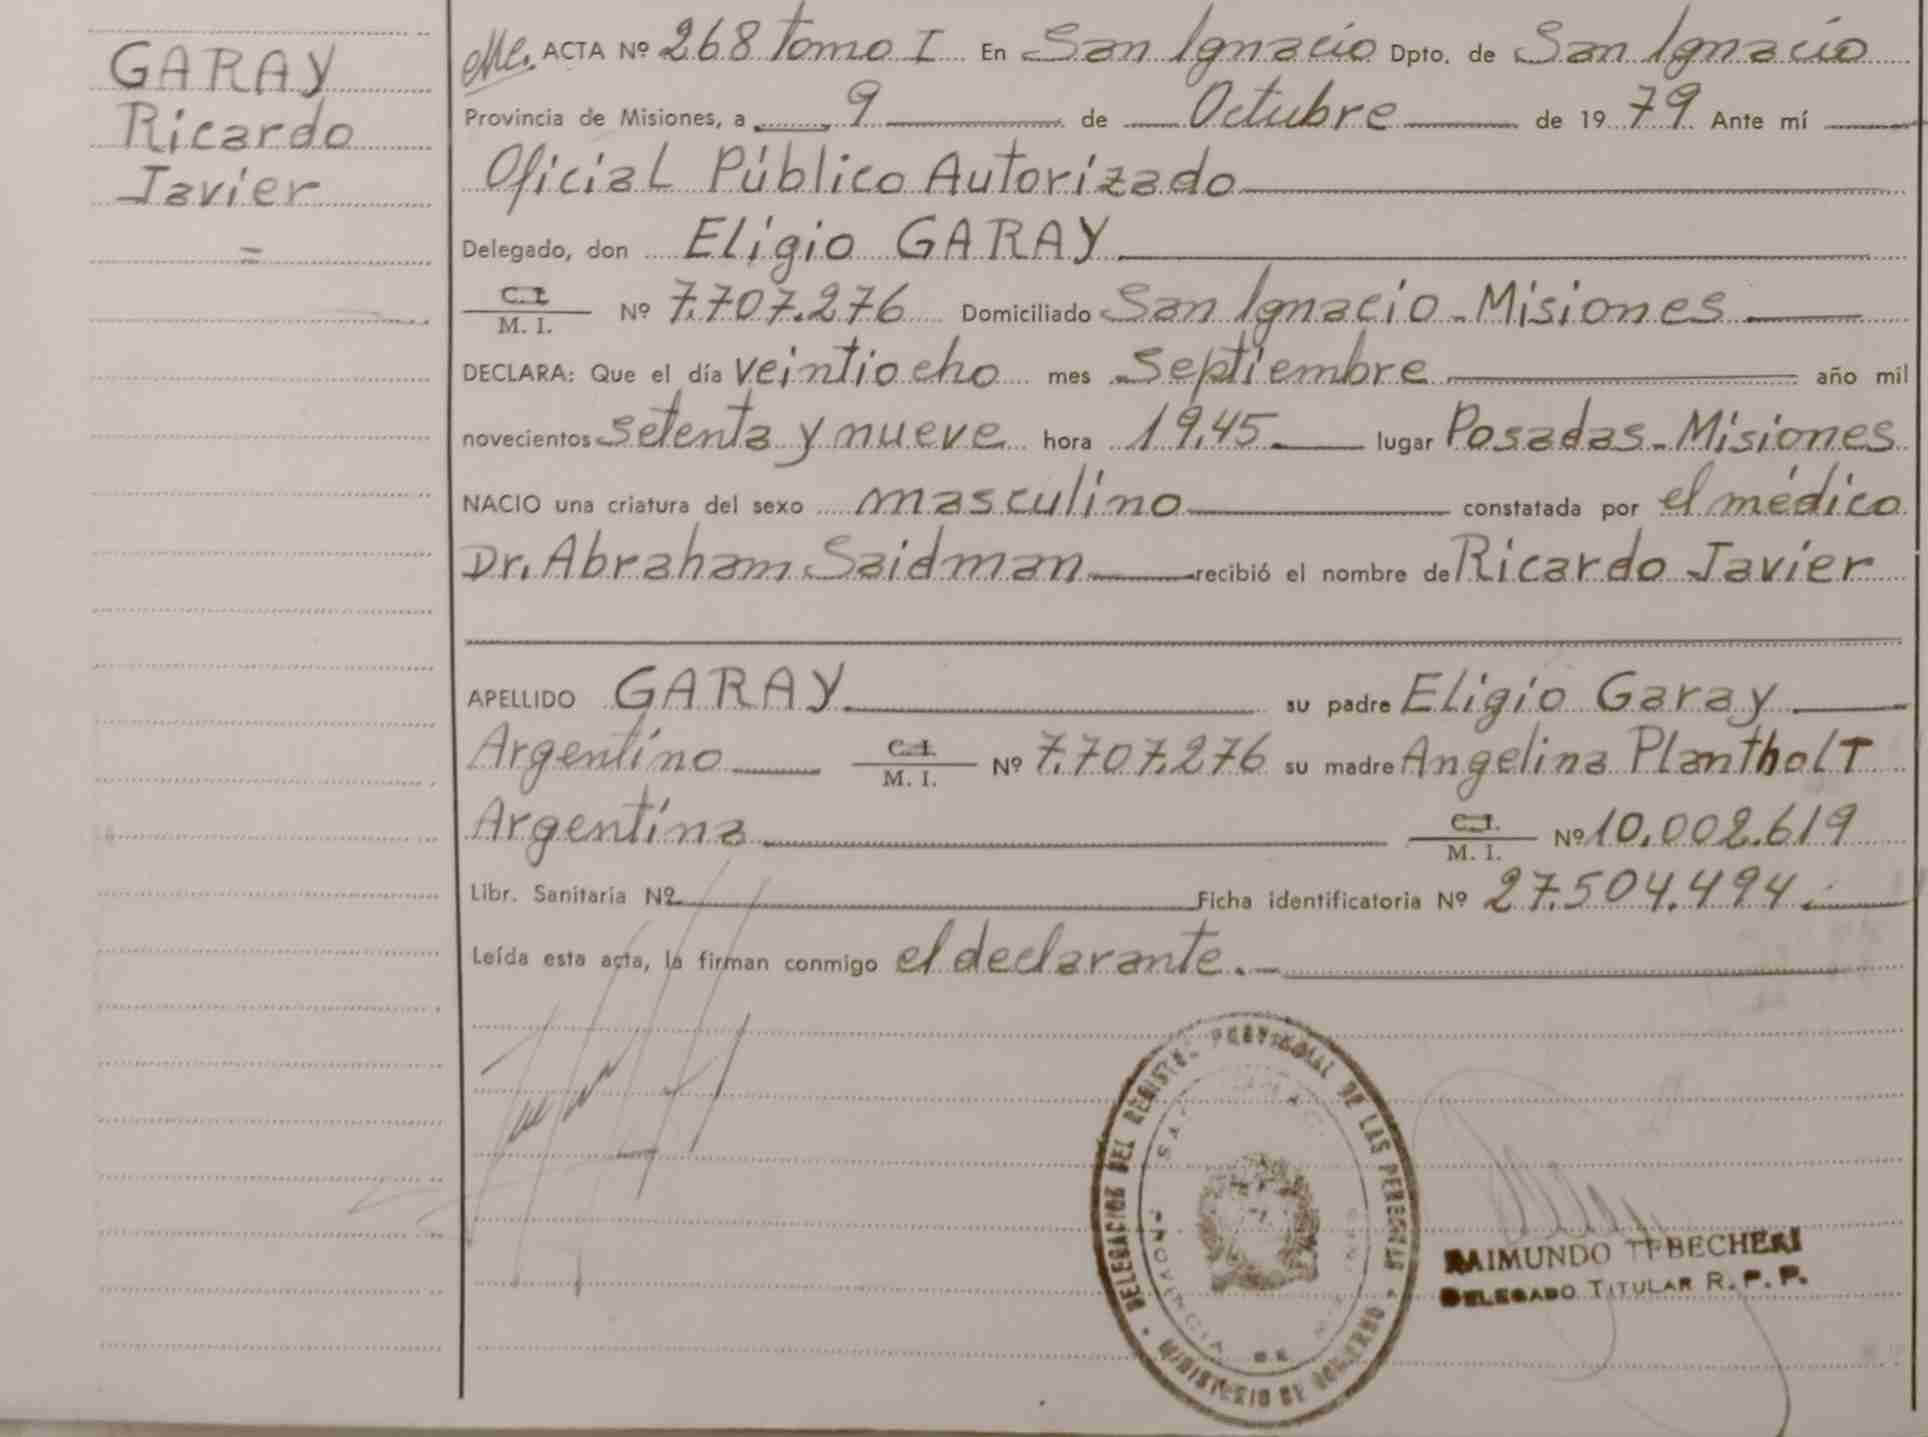 GARAY
Ricardo
Javier
=
ACTA Nº 268 tomo I En San Ignacio Dpto. de San Ignacio
Provincia de Misiones, a 9 de Octubre de 1979 Ante mí
Oficial Público Autorizado
Delegado, don Eligio GARAY
C. I. / M. I. Nº 7.707.276 Domiciliado San Ignacio - Misiones
DECLARA: Que el día veintiocho mes Septiembre año mil
novecientos setenta y nueve hora 19,45 lugar Posadas - Misiones
NACIO una criatura del sexo masculino constatada por el médico
Dr. Abraham Saidman recibió el nombre de Ricardo Javier
APELLIDO GARAY su padre Eligio Garay
Argentino C. I. / M. I. Nº 7.707.276 su madre Angelina Plantholt
Argentina C. I. / M. I. Nº 10.002.619
Libr. Sanitaria Nº Ficha identificatoria Nº 27.504.494
Leída esta acta, la firman conmigo el declarante. -
DELEGACION DEL REGISTRO PROVINCIAL DE LAS PERSONAS
PROVINCIA DE
MINISTERIO DE GOBIERNO
RAIMUNDO TEBECHERI
DELEGADO TITULAR R. P. P.